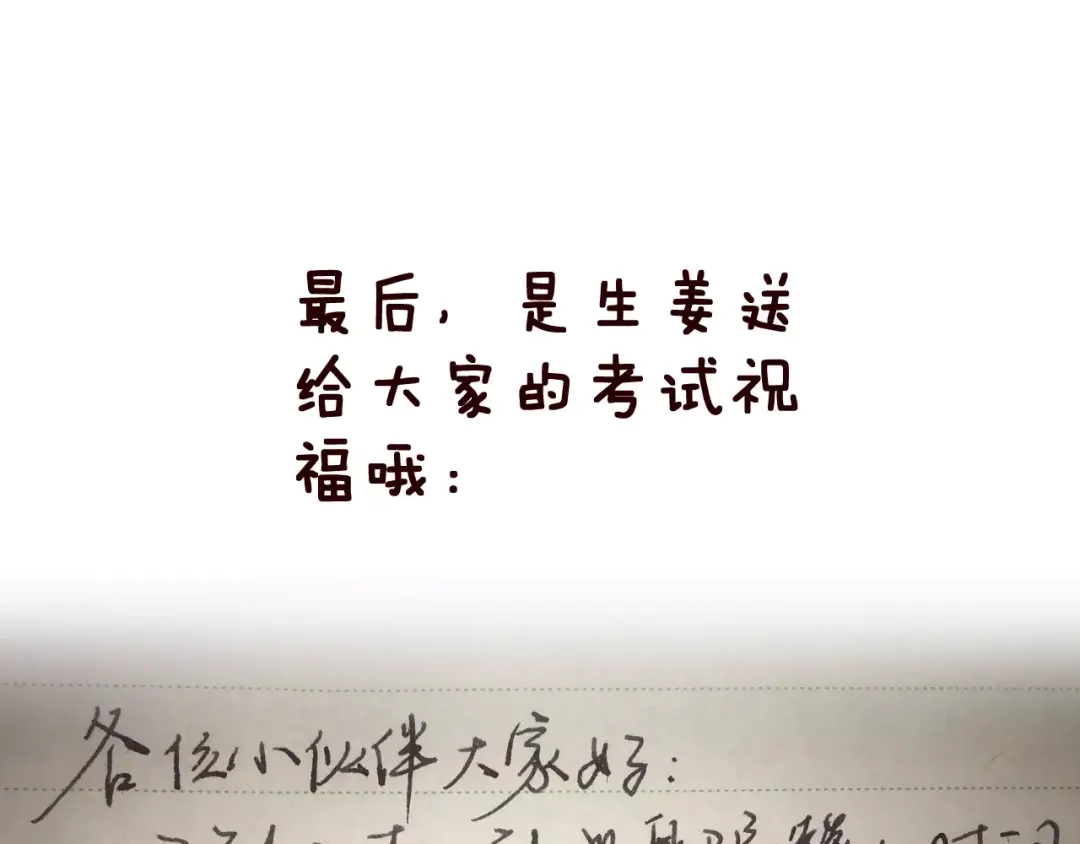 最后，是生姜送
给大家的考试祝
福哦：
各位小伙伴大家好：